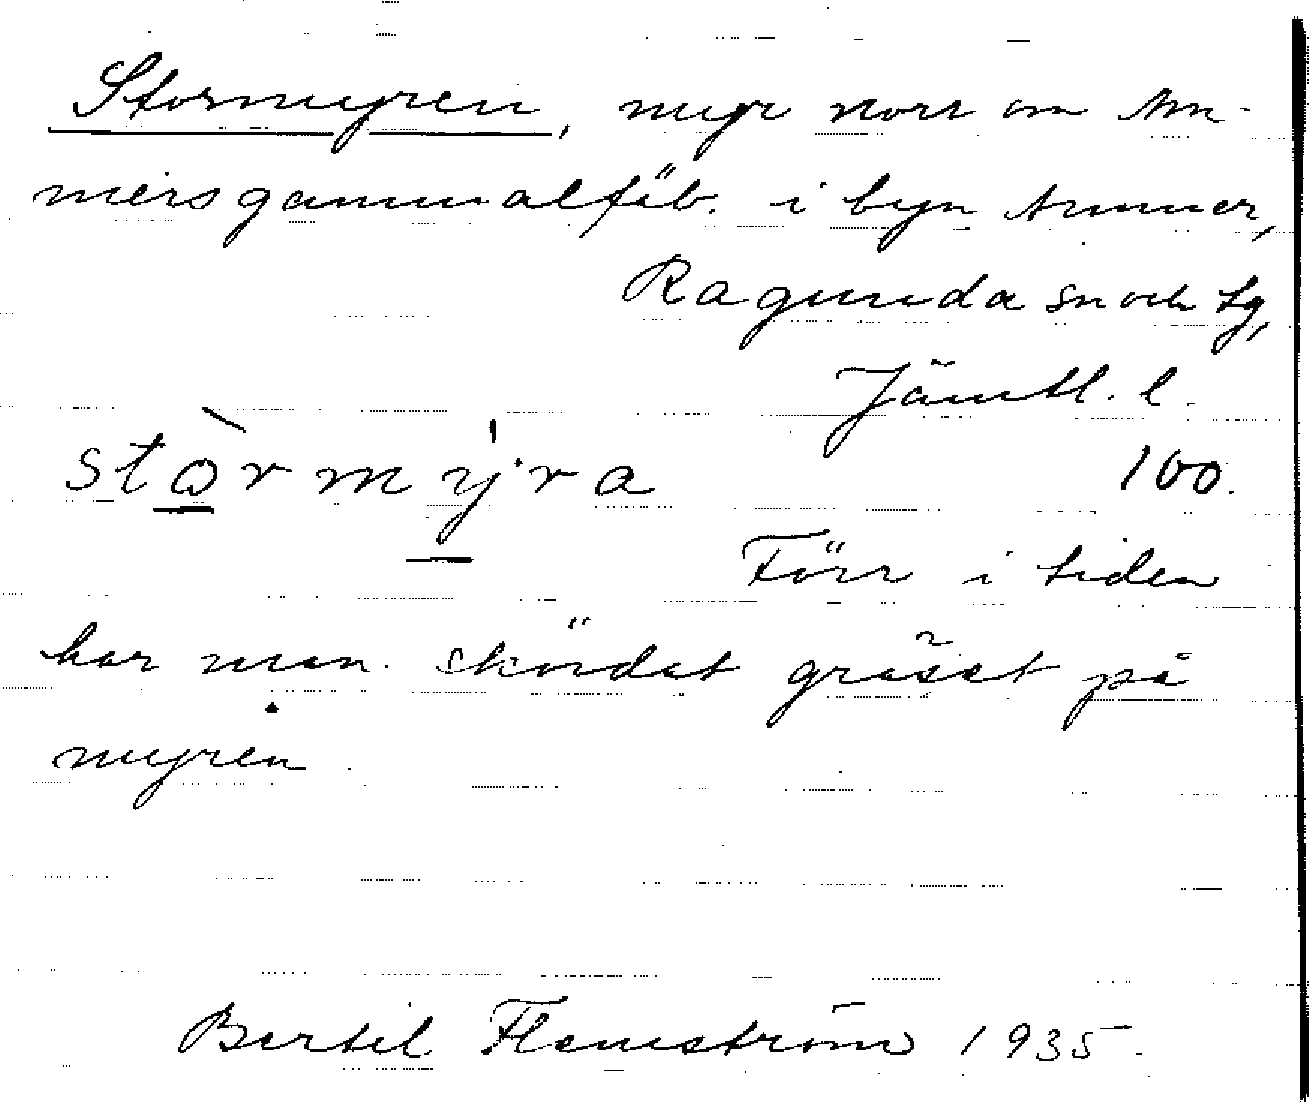 Stormyren, myr norr om Am-
mersgammalfäb. i byn Ammer,
Ragunda sn och tg,
Jämtl. l.
stòrmy̍ra 100.
Förr i tiden
har man skördat gräset på
myren.
Bertil Flemström 1935.